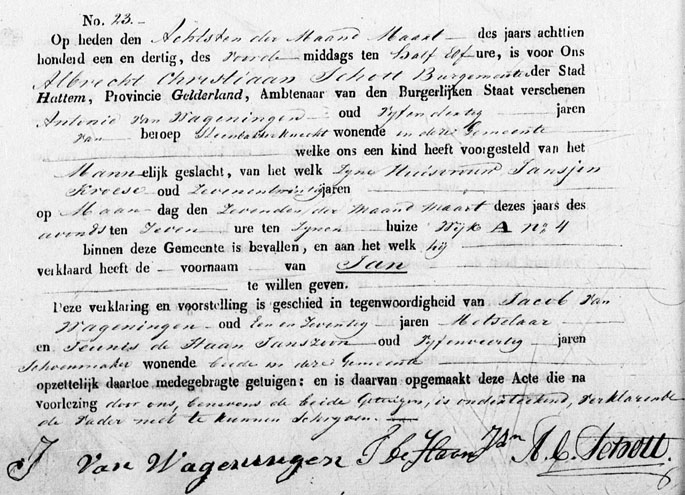 No. 23.
Op heden den Achtsten der Maand Maart des jaars achttien
honderd een en dertig, des Voorde middags ten half Elf ure, is voor Ons
Albrecht Christiaan Schott Burgemeester der Stad
Hattem, Provincie Gelderland, Ambtenaar van den Burgerlijken Staat verschenen
Antonie van Wageningen oud Vyfendertig jaren
van beroep Steenbakkersknecht wonende in deze Gemeente
welke ons een kind heeft voorgesteld van het
Mannelijk geslacht, van het welk Zyne Huisvrouw Jansjen
Kroese oud Zevenentwintig jaren
op Maandag den Zevenden der Maand Maart dezes jaars des
avonds ten Zeven ure ten Zynen huize Wyk A no 4
binnen deze Gemeente is bevallen, en aan het welk hy
verklaard heeft de voornaam van Jan
te willen geven.
Deze verklaring en voorstelling is geschied in tegenwoordigheid van Jacob van
Wageningen oud Een en Zeventig jaren Metselaar
en Teunis de Haan Janszoon oud Vyfenveertig jaren
Schoenmaker wonende beide in deze Gemeente
opzettelijk daartoe medegebragte getuigen: en is daarvan opgemaakt deze Acte die na
voorlezing door ons, benevens de beide Getuigen, is onderteekend, verklarende
de Vader niet te kunnen Schryven.
J van Wageningen T de Haan Jzn A. C. Schott